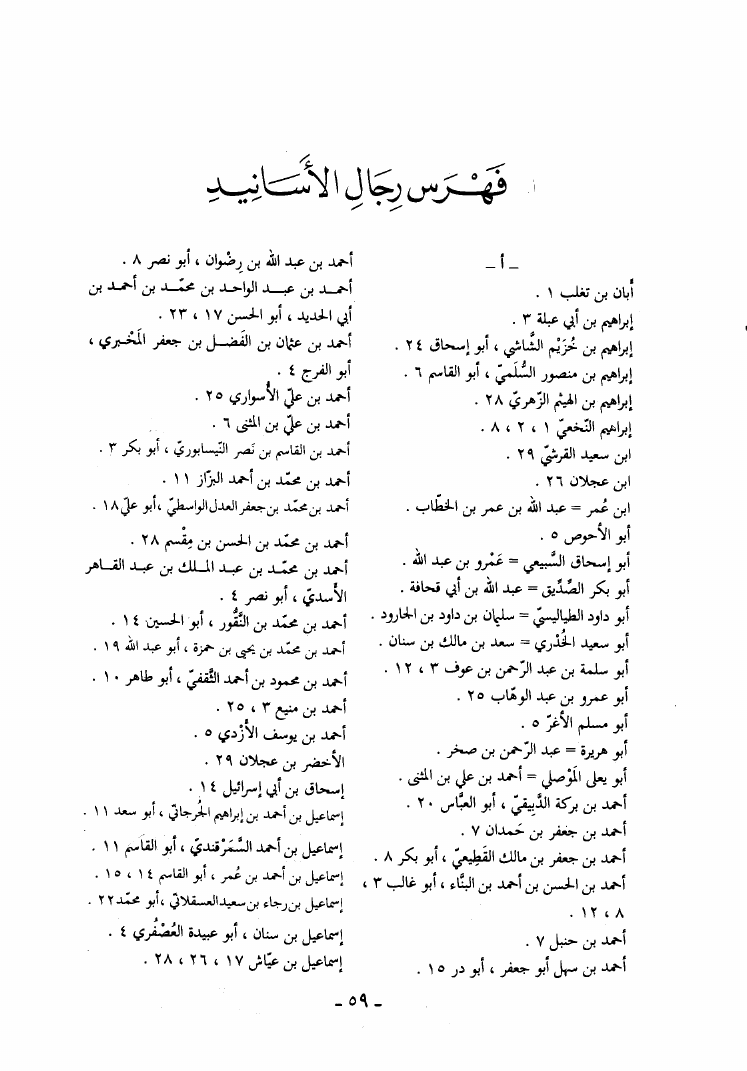 فَهْرَس رِجَالِ الأَسَانِيدِ
ـ أ ـ
أَبان بن تغلب ١ .
إبراهيم بن أبي عبلة ٣ .
إبراهيم بن خُزَيْم الشَّاشي ، أبو إسحاق ٢٤ .
إبراهيم بن منصور السُّلَميّ ، أبو القاسم ٦ .
إبراهيم بن الهيثم الزّهريّ ٢٨ .
إبراهيم النّخعيّ ١ ، ٢ ، ٨ .
ابن سعيد القرشيّ ٢٩ .
ابن عجلان ٢٦ .
ابن عُمر = عبد الله بن عمر بن الخطّاب .
أبو الأحوص ٥ .
أبو إسحاق السَّبيعي = عَمْرو بن عبد الله .
أبو بكر الصِّدِّيق = عبد الله بن أبي قحافة .
أبو داود الطيالسيّ = سليمان بن داود بن الجارود .
أبو سعيد الخُدْري = سعد بن مالك بن سنان .
أبو سلمة بن عبد الرّحمن بن عوف ٣ ، ١٢ .
أبو عمرو بن عبد الوهّاب ٢٥ .
أبو مسلم الأغرّ ٥ .
أبو هريرة = عبد الرّحمن بن صخر .
أبو يعلى المَوْصلي = أحمد بن علي بن المثنى .
أحمد بن بركة الدَّبيقيّ ، أبو العبَّاس ٢٠ .
أحمد بن جعفر بن حَمدان ٧ .
أحمد بن جعفر بن مالك القَطِيعيّ ، أبو بكر ٨ .
أحمد بن الحسن بن أحمد بن البنَّاء ، أبو غالب ٣ ،
٨ ، ١٢ .
أحمد بن حنبل ٧ .
أحمد بن سهل أبو جعفر ، أبو در ١٥ .
أحمد بن عبد الله بن رِضْوان ، أبو نصر ٨ .
أحمــد بن عبــد الواحـد بن محمّــد بن أحمـد بن
أبي الحديد ، أبو الحسن ١٧ ، ٢٣ .
أحمد بن عثمان بن الفَضــل بن جعفر المَخْـبري ،
أبو الفرج ٤ .
أحمد بن عليّ الأسواري ٢٥ .
أحمد بن عليّ بن المثنى ٦ .
أحمد بن القاسم بن نَصر النَّيسابوريّ ، أبو بكر ٣ .
أحمد بن محمّد بن أحمد البزّاز ١١ .
أحمد بن محمّد بن جعفر العدل الواسطيّ ،أبو عليّ ١٨ .
أحمد بن محمّد بن الحسن بن مِقْسم ٢٨ .
أحمد بن محمّـد بن عبـد المـلك بن عبـد القـاهر
الأسديّ ، أبو نصر ٤ .
أحمد بن محمّد بن النَّقُّور ، أبو الحسين ١٤ .
أحمد بن محمّد بن يحيى بن حمزة ، أبو عبد الله ١٩ .
أحمد بن محمود بن أحمد الثَّقفيّ ، أبو طاهر ١٠ .
أحمد بن منيع ٣ ، ٢٥ .
أحمد بن يوسف الأَزْدي ٥ .
الأخضر بن عجلان ٢٩ .
إسحاق بن أبي إسرائيل ١٤ .
إسماعيل بن أحمد بن إبراهيم الجُرجانيّ ، أبو سعد ١١ .
إسماعيل بن أحمد السَّمَرْقنديّ ، أبو القاسم ١١ .
إسماعيل بن أحمد بن عُمر ، أبو القاسم ١٤ ، ١٥ .
إسماعيل بن رجاء بن سعيد العسقلانيّ ،أبو محمّد ٢٢ .
إسماعيل بن سنان ، أبو عبيدة العُصْفُري ٤ .
إسماعيل بن عيّاش ١٧ ، ٢٦ ، ٢٨ .
ـ ٥٩ ـ